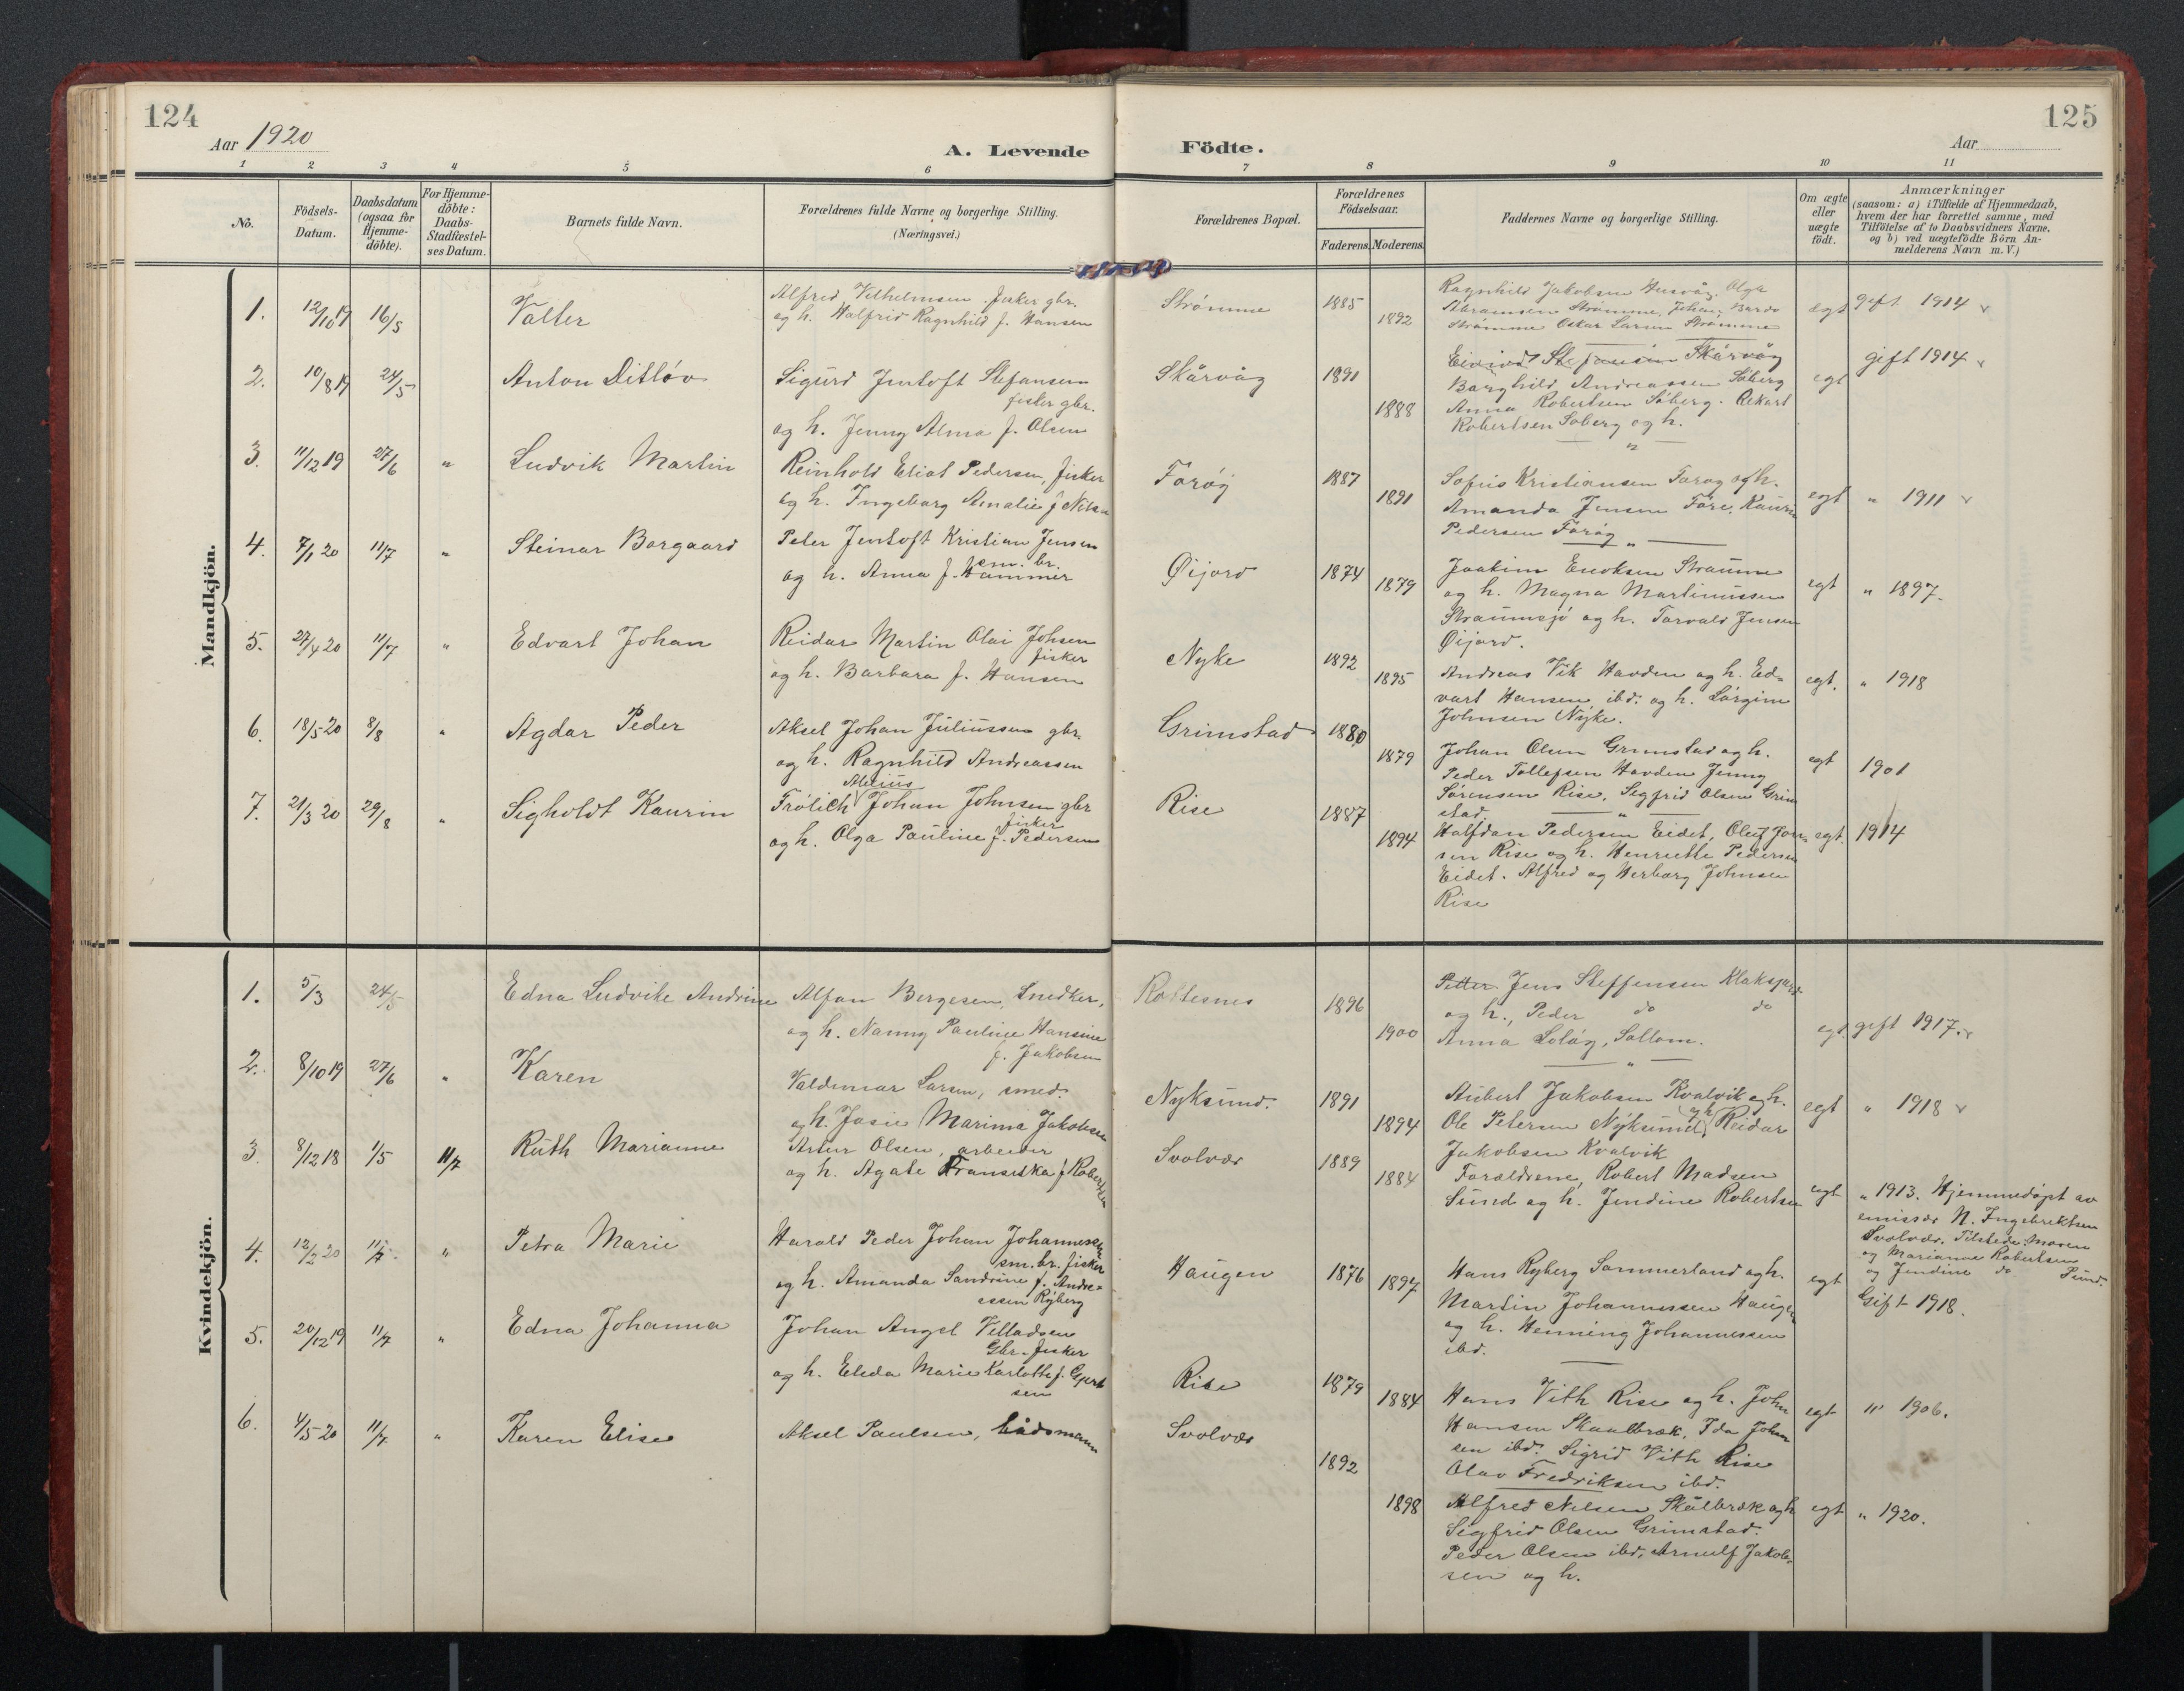 124
Aar 1920
A. Levende
1 2 3 4 5 6
No.
Födsels-Datum.
Daabsdatum (ogsaa for Hjemme-döbte).
For Hjemme-döbte: Daabs-Stadfæstel-ses Datum.
Barnets fulde Navn.
Forældrenes fulde Navne og borgerlige Stilling.
(Næringsvei.)
125
Födte.
Aar
7 8 9 10 11
Forældrenes Bopæl.
Forældrenes Födselsaar.
Faderens. Moderens.
Faddernes Navne og borgerlige Stilling.
Om ægte eller uægte födt.
Anmærkninger
(saasom: a) i Tilfælde af Hjemmedaab,
hvem der har forrettet samme, med
Tilföielse af to Daabsvidners Navne,
og b) ved uægtefödte Börn An-
melderens Navn m.V.)
Mandkjön.
1. 12/10 19 16/5 Valter
Alfred Vilhelmsen fisker gbr.
og h. Halfrid Ragnhild f. Hansen
Strømme 1885 1892
Ragnhild Jakobsen Husvåg, Olga
Abramsen Strømme, Johan Bardo
Strømme Oskar Larsen Strømme
egt gift 1914
2. 10/8 19 24/5 Anton Ditløv
Sigurd Jentoft Stefansen
fisker gbr.
og h. Jenny Alma f. Olsen
Skårvåg 1891 1888
Eivind Stefansen Skårvåg
Borghild Andreassen Söberg
Anna Robertsen Söberg. Rikart
Robertsen Soberg og h.
egt gift 1914
3. 11/12 19 27/6 " Ludvik Martin
Reinhold Eliot Pedersen, fisker
og h. Ingeborg Amalie f. Nilsen
Forøy 1887 1891
Sofus Kristiansen Forøy og h.
Amanda Jensen Före, Kaurin
Pedersen Forøy
egt " 1911
4. 7/1 20 11/7 " Steinar Borgaard
Peter Jentoft Kristian Jensen
sm. br.
og h. Anna f. Hammer
Øijord 1874 1879
Joakim Enoksen Straume
og h. Magna Martinussen
Straumsjö og h. Torvald Jensen
Øijord.
egt " 1897.
5. 27/4 20 11/7 " Edvart Johan
Reidar Martin Olai Johsen
fisker
og h. Barbara f. Hansen
Nyke 1892 1895
Andreas Vik Hovden og h. Ed-
vart Hansen ibd. og h. Lorgine
Johnsen Nyke.
egt. " 1918
6. 18/5 20 8/8 " Agdar Peder
Aksel Johan Juliussen gbr.
og h. Ragnhild Andreassen
Grimstad 1880 1879
Johan Olsen Grimstad og h.
Peder Tollefsen Hovden Jenny
Sørensen Rise, Segfrid Olsen Grim
stad.
egt 1901
7. 21/3 20 29/8 " Sigholdt Kaurin
Frölich Johan Johnsen gbr
fisker
og h. Olga Pauline f. Pedersen
Rise 1887 1894
Halfdan Pedersen Eidet, Oluf John
sen Rise og h. Henriette Pedersen
Eidet. Alfred og Herborg Johnsen
Rise
egt. 1914
Kvindekjön.
1. 5/3 24/5 Edna Ludvike Andrine
Alfon Bergesen, Snedker,
og h. Nanny Pauline Hansine
f. Jakobsen
1896 1900
Petter Jens Steffensen Klaksjord
og h., Peder do do
Anna Loløy, Sallom.
egt gift 1917.
2. 8/10 19 27/6 " Karen
Valdemar Larsen, smed.
og h. Josie Marima Jakobsen
Nyksund. 1891 1894
Aubert Jakobsen Kvalvik og h.
Ole Petersen Nyksund, og h. Reidar
Jakobsen Kvalvik
egt " 1918
3 8/12 18 1/5 11/7 Ruth Marianne
Artur Olsen, arbeider
og h. Agate Fransiska f Robertsen
Svolvær 1889 1884
Forældrene, Robert Madsen
Sund og h. Jendine Robertsen
egt " 1913. Hjemmedøpt av
emissær N. Ingebrektsen
Svolvær. Tilstede: Moren
og Marianne Robertsen
og Jendine do Sund.
4. 12/2 20 11/7 " Petra Marie
Harald Peder Johan Johannessen
sm. br. fisker
og h. Amanda Sandrine f. Andre-
assen Ryberg
Haugen 1876 1897
Hans Ryberg Sommerland og h.
Martin Johannessen Haugen
og h. Henning Johannessen
ibd.
egt Gift 1918.
5. 20/12 19 11/7 " Edna Johanna
Johan Angel Villadsen
Gbr. fisker
og h. Elida Marie Karlotte f. Gjert
sen
Rise 1879 1884
Hans Vith Rise og h. John
Hansen Skaalbræk, Ida Johan
sen ibd. Sigrid Vith Rise
Olav Fredriksen ibd.
egt " 1906.
6. 4/5 20 11/7 " Karen Elise
Aksel Paulsen, bådsmann
Svolvær 1892 1898
Alfred Nilsen Skålbræk og h
Sigfrid Olsen Grimstad.
Peder Olsen ibd, Arnulf Jakob-
sen og h.
egt " 1920.